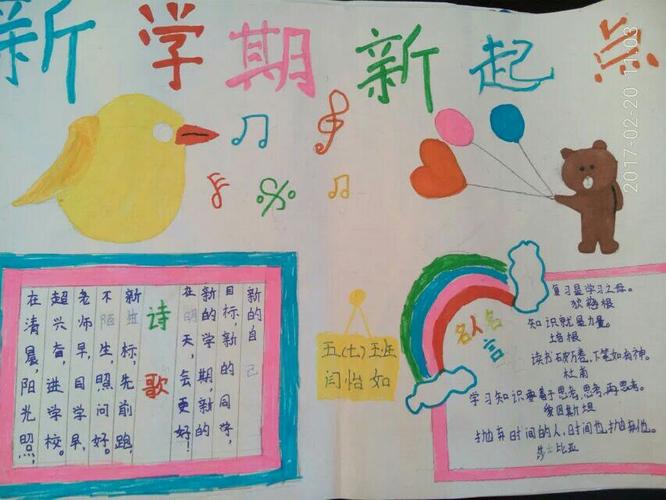 新学期新起点
2017-02-20 11:03
在清晨,阳光照,
超兴奋,进学校。
老师早,同学早,
不陌生照问好。
新标,先前跑,
诗歌
在明天,会更好!
新的学期,新的
目标,新的同学,
新的自己
五(七)班
闫怡如
名人名言
复习是学习之母。
狄慈根
知识就是力量。
培根
读书破万卷,下笔如有神。
杜甫
学习知识要善于思考,思考,再思考。
爱因斯坦
抛弃时间的人,时间也抛弃他。
莎士比亚